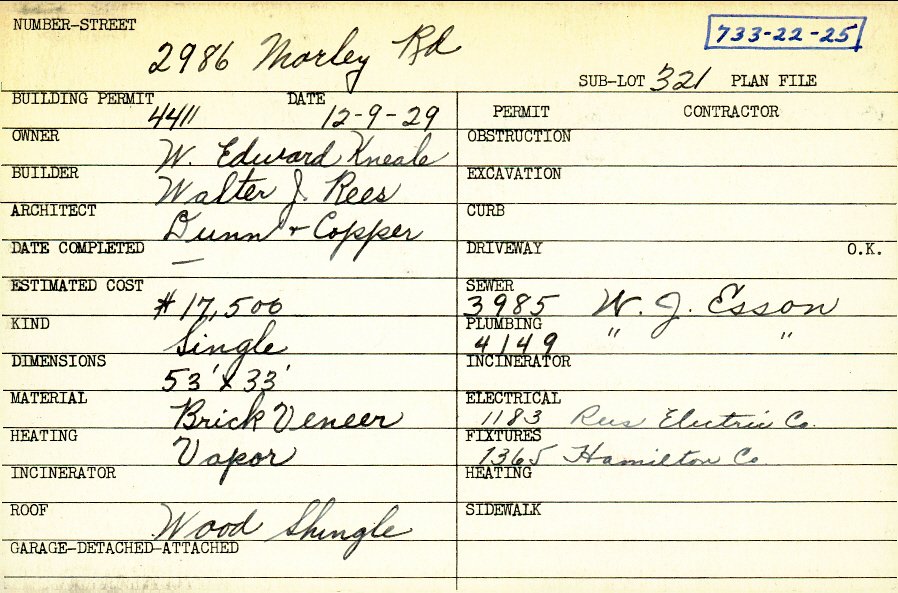 NUMBER-STREET
2986 Morley Rd
733-22-25
SUB-LOT 321 PLAN FILE
BUILDING PERMIT 4411 DATE 12-9-29
OWNER W. Edward Kneale
BUILDER Walter J. Rees
ARCHITECT Dunn + Copper
DATE COMPLETED —
ESTIMATED COST $17,500
KIND Single
DIMENSIONS 53' x 33'
MATERIAL Brick Veneer
HEATING Vapor
INCINERATOR
ROOF Wood Shingle
GARAGE-DETACHED-ATTACHED
PERMIT CONTRACTOR
OBSTRUCTION
EXCAVATION
CURB
DRIVEWAY O.K.
SEWER
3985 W. J. Esson
PLUMBING
4149 " "
INCINERATOR
ELECTRICAL
1183 Rees Electric Co.
FIXTURES
1365 Hamilton Co.
HEATING
SIDEWALK